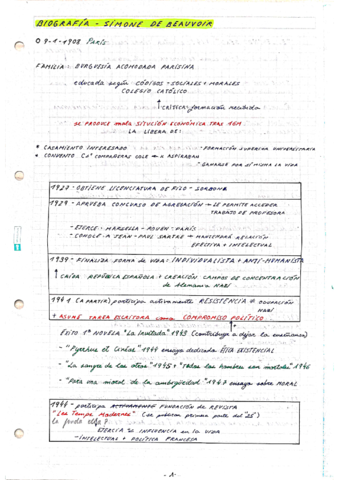 BIOGRAFÍA - SIMONE DE BEAUVOIR
9-1-1908 París
FAMILIA: BURGUESÍA ACOMODADA PARISINA
educada según CÓDIGOS - SOCIALES + MORALES
COLEGIO CATÓLICO
CRÍTICA: formación recibida
se PRODUCE mala SITUCIÓN ECONÓMICA TRAS 1GM
LA LIBERA DE:
* CASAMIENTO INTERESADO - FORMACIÓN SUPERIOR UNIVERSITARIA
* CONVENTO Cº COMPAÑERAS COLE ASPIRABAN
- GANARSE POR SÍ MISMA LA VIDA
OBTIENE LICENCIATURA DE FILO - SORBONA
1929 - APRUEBA CONCURSO DE AGREGACIÓN → SE PERMITE ACCEDER
TRABAJO DE PROFESORA
- EJERCE: MARSELLA - ROUEN - PARÍS
- CONOCE A JEAN-PAUL SARTRE → MANTENDRÁ RELACIÓN
AFECTIVA e INTELECTUAL
1939 - FINALIZA FORMA DE VIDA: INDIVIDUALISTA + ANTI-HUMANISTA
↑ CAÍDA REPÚBLICA ESPAÑOLA + CREACIÓN CAMPOS DE CONCENTRACIÓN
de Alemania NAZI
1941 (A PARTIR) participa activamente RESISTENCIA a OCUPACIÓN
NAZI
+ ASUME TAREA ESCRITORA como COMPROMISO POLÍTICO
ÉXITO 1ª NOVELA "La invitada" 1943 (contribuye a dejar la enseñanza)
- "Pyrrhus et Cinéas" 1944 ensayo dedicado ÉTICA EXISTENCIAL
- "La sangre de los otros" 1945 + "Todos los hombres son mortales" 1946
- "Para una moral de la ambigüedad" 1947 ensayo sobre MORAL
participa FUNDACIÓN DE REVISTA
"Les Temps Modernes" (se publica primera parte del
la funda ella?
EJERCIÓ la INFLUENCIA en la VIDA
- INTELECTUAL + POLÍTICA FRANCESA
- 1 -